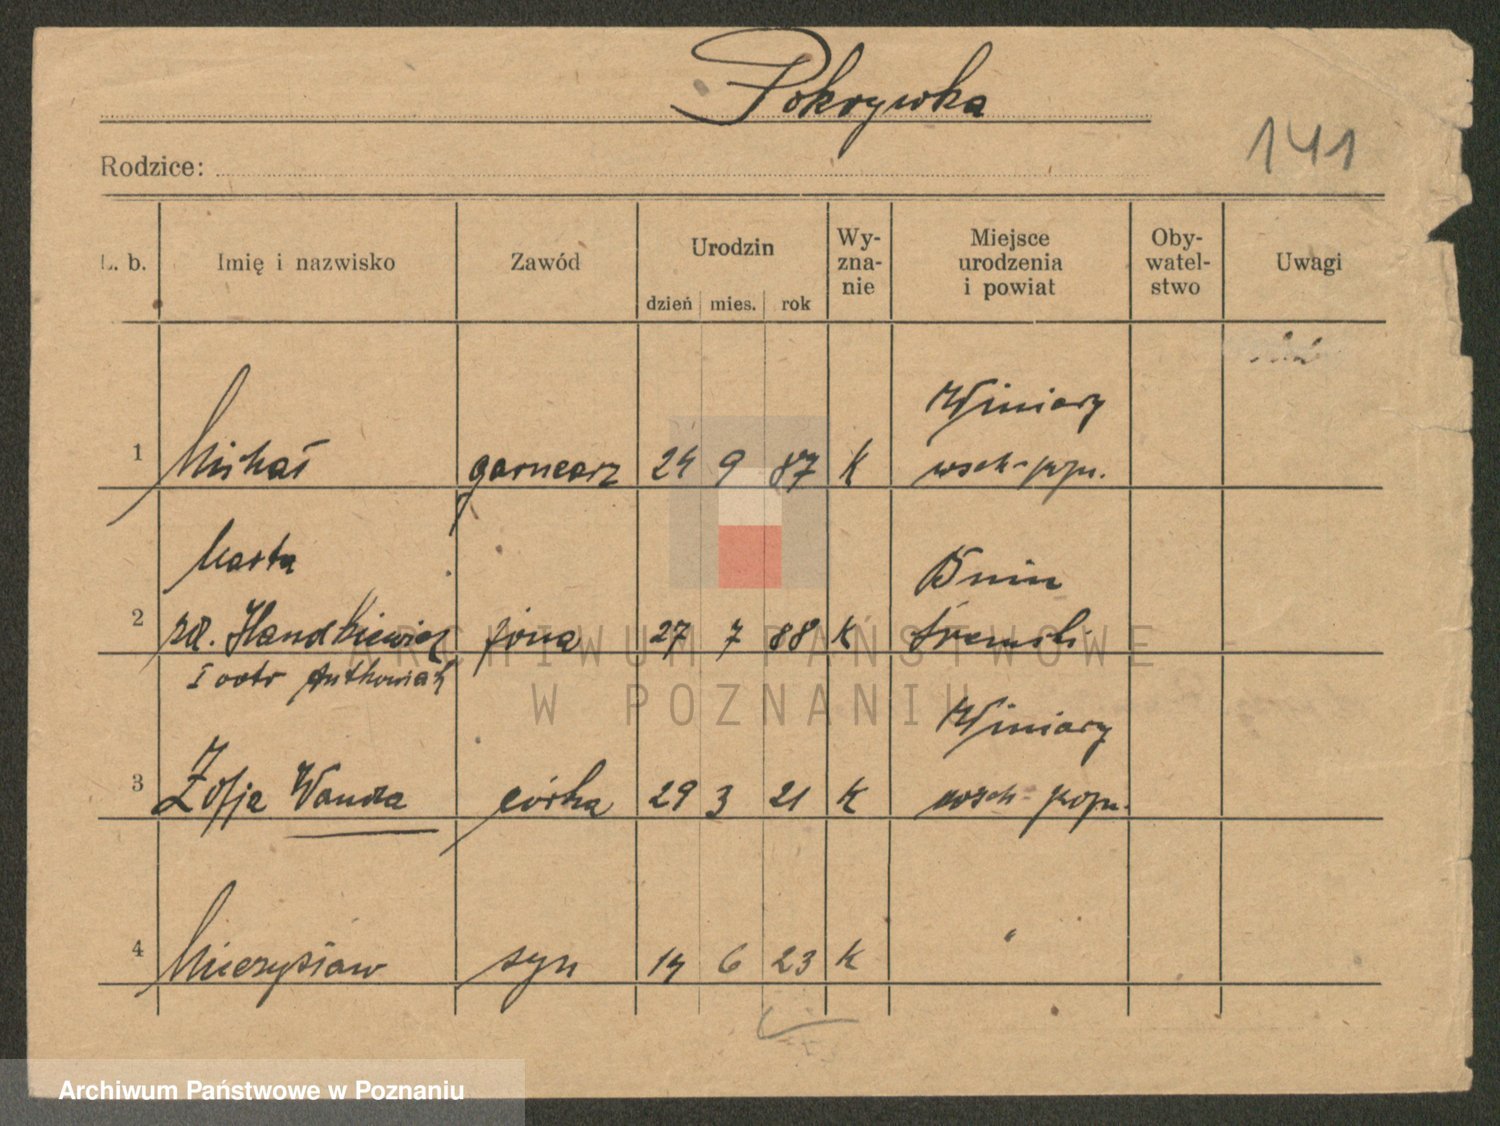 Pokrywka
141
Rodzice:
L. b. Imię i nazwisko Zawód Urodzin dzień mies. rok Wy-zna-nie Miejsce urodzenia i powiat Oby-watel-stwo Uwagi
Winiary
1 Michał garncarz 24 9 87 K
Marta Bnin
2 żona 27 7 88 K śremski
Winiary
3 Zofja Wanda córka 29 3 21 K
4 Mieczysław syn 14 6 23 K "
ARCHIWUM PAŃSTWOWE
W POZNANIU
Archiwum Państwowe w Poznaniu